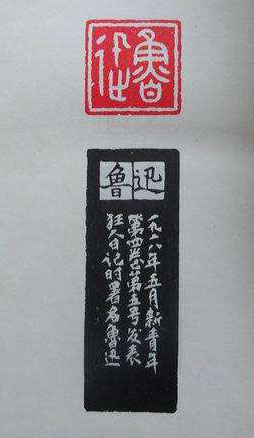 魯迅
魯迅
一九一八年五月新青年
第四卷第五号发表
狂人日记时署名魯迅